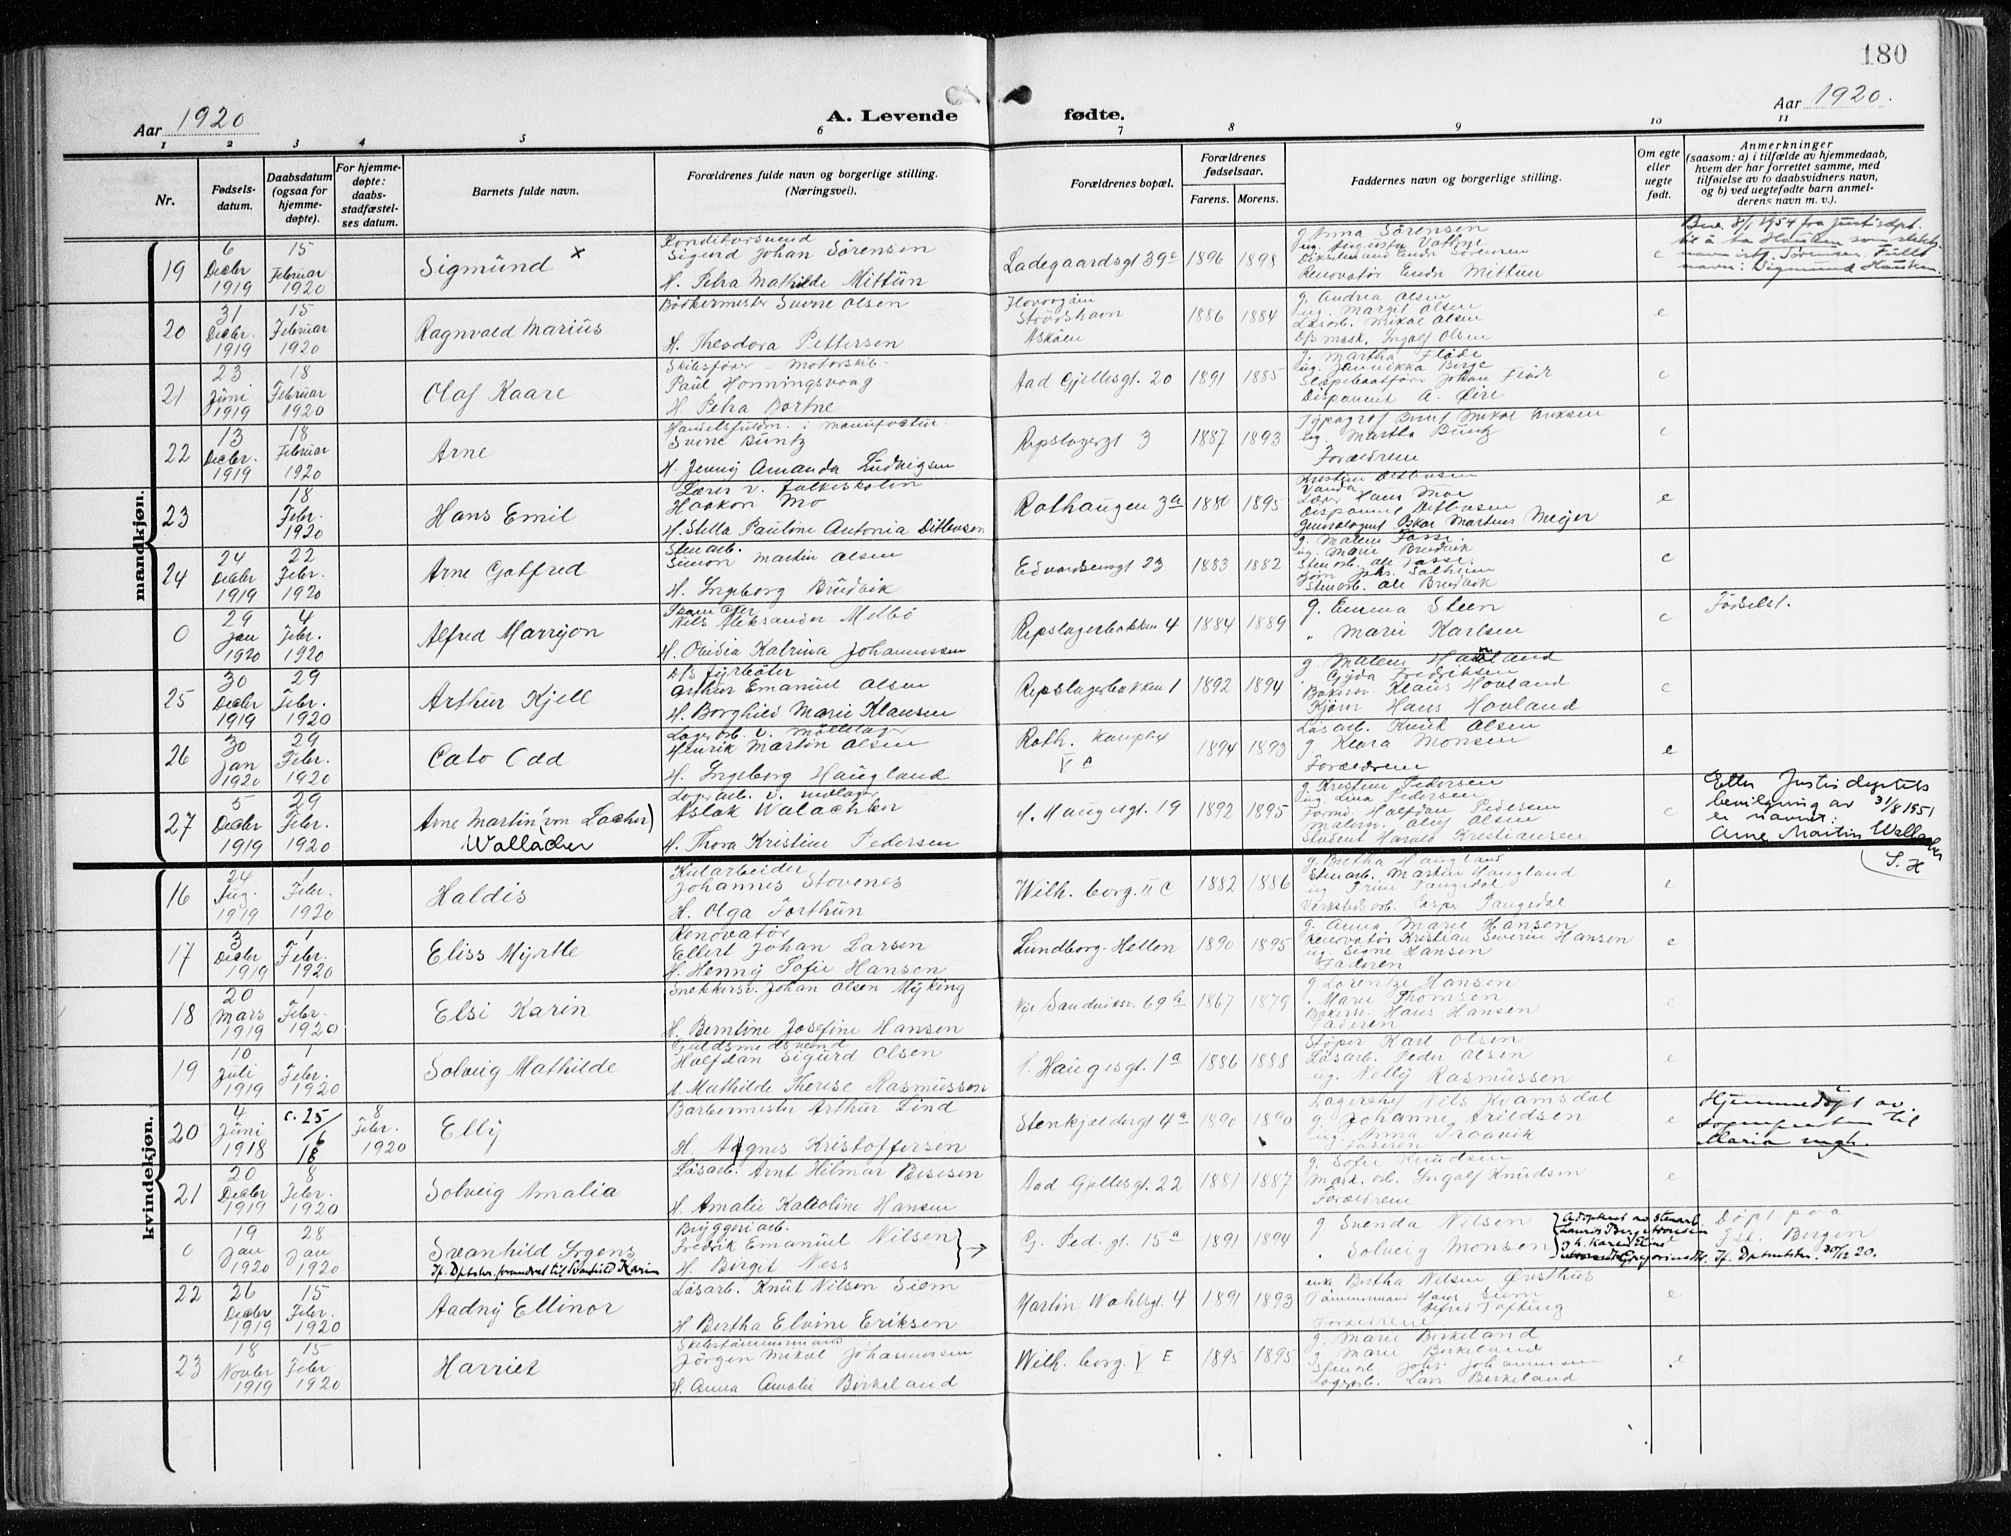 180
Aar 1920
A. Levende fødte.
Aar 1920.
1 2 3 4 5 6 7 8 9 10 11
Nr.
Fødsels-
datum.
Daabsdatum
(ogsaa for
hjemme-
døpte).
For hjemme-
døpte:
daabs-
stadfæstel-
ses datum.
Barnets fulde navn.
Forældrenes fulde navn og borgerlige stilling.
(Næringsvei).
Forældrenes bopæl.
Forældrenes
fødselsaar.
Farens. Morens.
Faddernes navn og borgerlige stilling.
Om egte
eller
uegte
født.
Anmerkninger
(saasom: a) i tilfælde av hjemmedaab,
hvem der har forrettet samme, med
tilføielse av to daabsvidners navn,
og b) ved uegtefødte barn anmel-
derens navn m. v.).
mandkjøn.
19 6 Decbr 1919 15 Februar 1920 Sigmund x
Konditorsvend
Sigurd Johan Sørensen
H. Petra Mathilde Mittun
Ladegaardsgt 39c 1896 1898
g. Anna Sørensen
ug. Augusta
Renovatør Endr Mittun
e
Bev. 8/1 1954 fra Justisdpt.
til å ta Hauken som slekts-
navn istf. Sørensen. Fullt
navn: Sigmund Hauken.
20 31 Decbr. 1919 15 Februar 1920 Ragnvald Marius
Bødkermester Sverre Olsen
H. Theodora Pettersen
Strudshavn
Askøen
1886 1884
g. Andrea Olsen
ug. Margit Olsen
Løsarb. Mikal Olsen
D/s mask. Ingolf Olsen
e
21 23 Juni 1919 18 Februar 1920 Olaf Kaare
Skibsfører - Motorskib.
Paul Honningsvaag
H Petra Bortne
Aad Gjellesgt. 20 1891 1885
g. Martha Fløde
ug. Jannikka Berge
Slæpebaatfører Johan Fløde
Disponent A. Øire
e
22 13 Decbr. 1919 18 Februar 1920 Arne
Handelsfuldm. i manufactur.
Sverre Buntz
H. Jenny Amanda Ludvigsen
Repslagergt 3 1887 1893
ug. Martha Buntz
Forældrene
e
23 18 Febr. 1920 Hans Emil
Lærer v. folkeskolen
Haakon Mo
H. Stella Pauline Antonia Ditlevsen
Rothaugen 3a 1880 1895
Kristine Ditlevsen
Lærer Hans Moe
Disponent Ditlevsen
Generalagent Oskar Martens Meyer
e
24 24 Decbr 1919 22 Febr. 1920 Arne Gotfred
Stenarb.
Simon Martin Olsen
H. Ingeborg Brudvik
Edvardsensgt 23 1883 1882
g. Malene Fosse.
ug. Marie Brudvik
Stenarb. Ole Fosse.
Stenarb. Ole Brudvik
e
0 29 Jan 1920 4 Febr. 1920 Alfred Marryon
Nils Aleksander Melbø
H. Ovidia Katrina Johannessen
Repslagerbakken 4 1884 1889
g. Emma Steen
" Marie Karlsen
e
Fødselst.
25 30 Decbr 1919 29 Febr. 1920 Arthur Kjell
D/s fyrbøter
Arthur Emanuel Olsen
H. Borghild Marie Klausen
Repslagerbakken 1 1892 1894
g. Malene Hauland
" Gyda Fredriksen
Bakersv. Klaus Hovland
Kjører Hans Hovland
e
26 30 Jan 1920 29 Febr. 1920 Cato Odd
Henrik Martin Olsen
H. Ingeborg Haugland
Roth. kompl. 4
V A
1894 1893
Løsarb. Knut Olsen
g. Klara Monsen
Forældrene
e
27 5 Decbr 1919 29 Febr. 1920 Arne Martin (von Locher)
Wallacher
Aslak Walachker
H. Thora Kristine Pedersen
H. Haugesgt. 19 1892 1895
g. Kristine Pedersen
ug. Lina Pedersen
Formd. Halfdan Pedersen
Malersv. Oluf Olsen
Student Harald Kristiansen
e
Etter Justisdeptets
bevilgning av 31/8 1951
er navnet:
Arne Martin Wallacher
S. H
kvindekjøn.
16 24 Aug. 1919 1 Febr. 1920 Haldis
Kularbeider
Johannes Stovenes
H. Olga Forthun
Wilh. borg. II C 1882 1886
g. Bertha Haugland
Stenarb. Martin Haugland
ug. Trine Tangedal
Verkstedsarb. Casper Tangedal
e
17 3 Decbr 1919 1 Febr. 1920 Eliss Myrtle
Renovatør
Ellert Johan Larsen
H. Henny Sofie Hansen
Lundborg-Hellen 1890 1895
g. Anna Marie Hansen
Renovatør Kristian Severin Hansen
ug. Signe Hansen
Faderen
e
18 20 Mars 1919 1 Febr. 1920 Elsi Karin
Snekkersv. Johan Olsen Myking
H. Berntine Josefine Hansen
Nye Sandviksv. 69h 1867 1879
g Lorentze Hansen
" Marie Thomsen
Bakersv. Hans Hansen
Faderen
e
19 10 Juli 1919 1 Febr. 1920 Solveig Mathilde
Guldsmedsvend
Halfdan Sigurd Olsen
H. Mathilde Therese Rasmussen
H. Haugesgt. 1a 1886 1888
Støper Karl Olsen
Løsarb. Peder Olsen
ug. Nelly Rasmussen
e
20 4 Juni 1918 c. 25/6 18 8 Febr. 1920 Elly
Barbermester Arthur Lind
H Agnes Kristoffersen
Stenkjeldergt 4a 1890 1890
Lagerchef Nils Kvamsdal
g. Johanne Arildsen
ug. Anna
Faderen
e
Hjemmedøpt av
sognepresten til
Maria mgh.
21 20 Decbr 1919 8 Febr. 1920 Solveig Amalia
Løsarb. Arnt Hilmar
H. Amalie Karoline Hansen
Aad Gjellesgt. 22 1881 1887
g. Sofie Knudsen
Mask. arb. Ingolf Knudsen
Forældrene
e
0 19 Jan 1920 28 Jan 1920 Svanhild Irgens
Bryggeriarb.
Fredrik Emanuel Nilsen
H. Birgit Ness
G. Ped. gt. 15a 1891 1894
g Svenda Nilsen
" Solveig Monsen
Adopteret av Stenarb.
Døpt paa
Fst. Bergen
If. Dptsskr. 30/12 20.
22 26 Decbr 1919 15 Febr. 1920 Aadny Ellinor
Løsarb. Knut Nilsen Siem
H Bertha Elvine Eriksen
Martin Wahlsgt. 4 1891 1893
enke Bertha Nilsen Ørsthus
Tømmermand Hans Siem
Alfred Tofting
Forældrene
e
23 18 Novbr 1919 15 Febr. 1920 Harriet
Skibstømmermand
Jørgen Mikal Johannessen
H. Anna Amalie Birkeland
Wilh. borg. V E 1895 1895
g. Marie Birkeland
g. Marie Birkeland
Stenarb. Johs. Johannessen
Lagerarb. Lars Birkeland
e